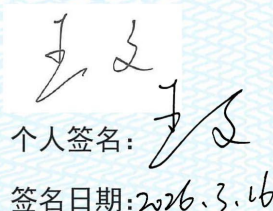 王文
个人签名：王文
签名日期：2026.3.16